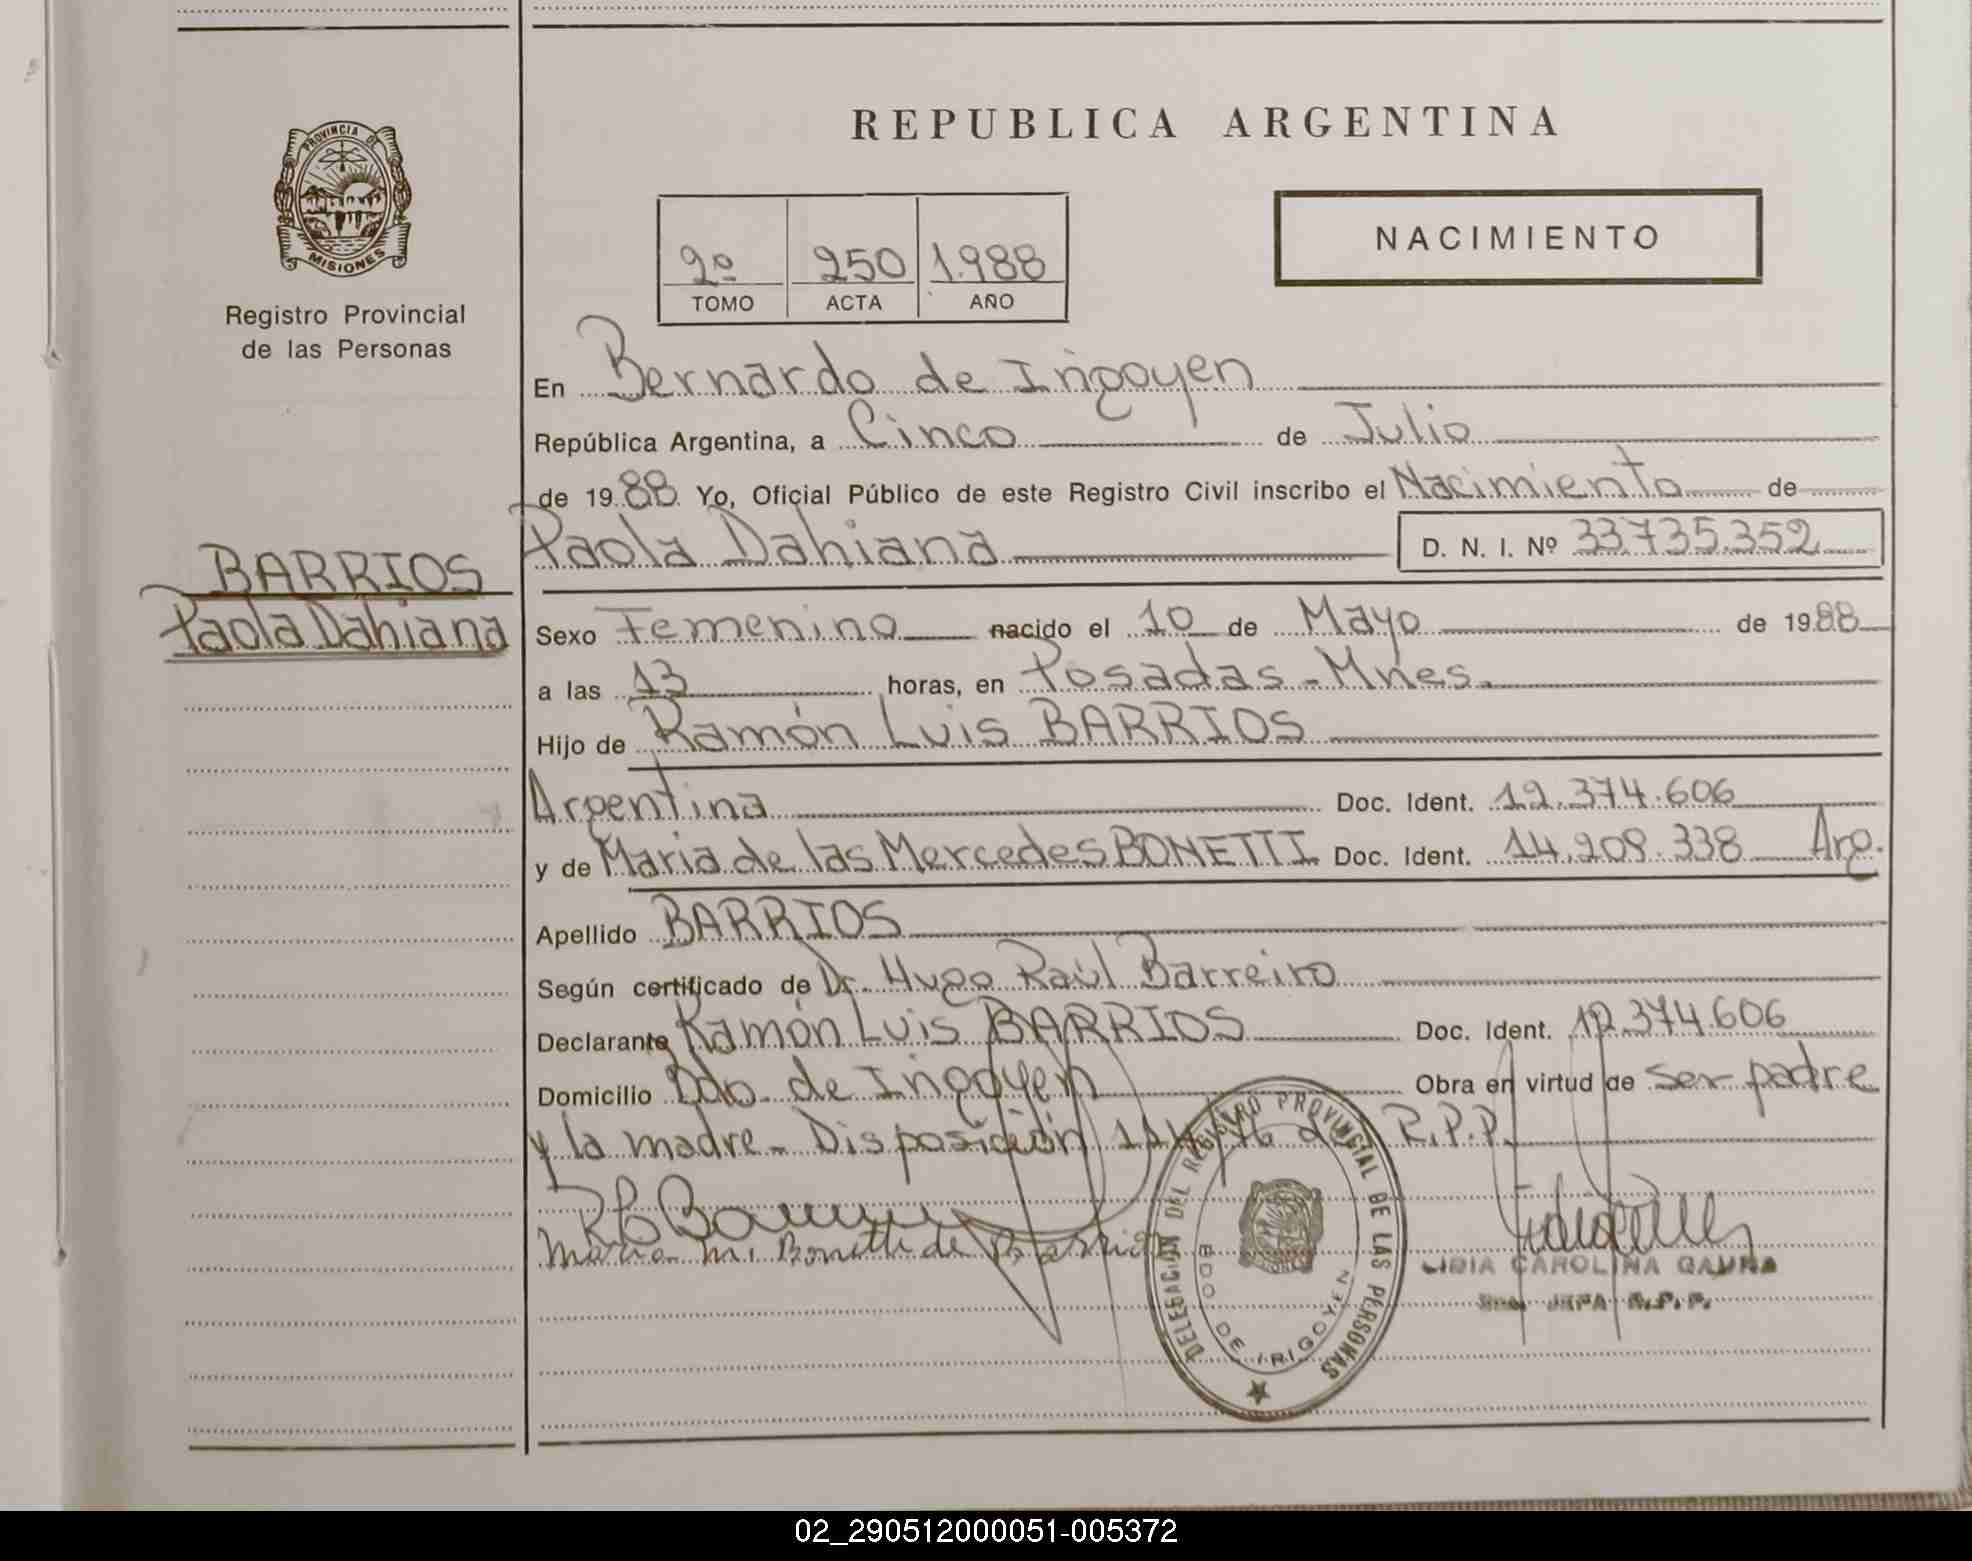 REPUBLICA ARGENTINA
PROVINCIA DE
MISIONES
Registro Provincial
de las Personas
NACIMIENTO
2º 250 1.988
TOMO ACTA AÑO
En Bernardo de Irigoyen
República Argentina, a Cinco de Julio
de 1988 Yo, Oficial Público de este Registro Civil inscribo el Nacimiento de
Paola Dahiana D. N. I. Nº 33.735.352
BARRIOS
Paola Dahiana
Sexo Femenino nacido el 10 de Mayo de 1988
a las 13 horas, en Posadas - Mnes.
Hijo de Ramón Luis BARRIOS
Argentina Doc. Ident. 12.374.606
y de Maria de las Mercedes BONETTI Doc. Ident. 14.209.338 Arg.
Apellido BARRIOS
Según certificado de Dr. Hugo Raúl Barreiro
Declarante Ramón Luis BARRIOS Doc. Ident. 12.374.606
Domicilio Bdo. de Irigoyen Obra en virtud de ser padre
y la madre - Disposición R.P.P.
Maria M. Bonetti de Barrios
DELEGACION DEL REGISTRO PROVINCIAL DE LAS PERSONAS
BDO DE IRIGOYEN
CAROLINA
JEFA R.P.P.
02_290512000051-005372